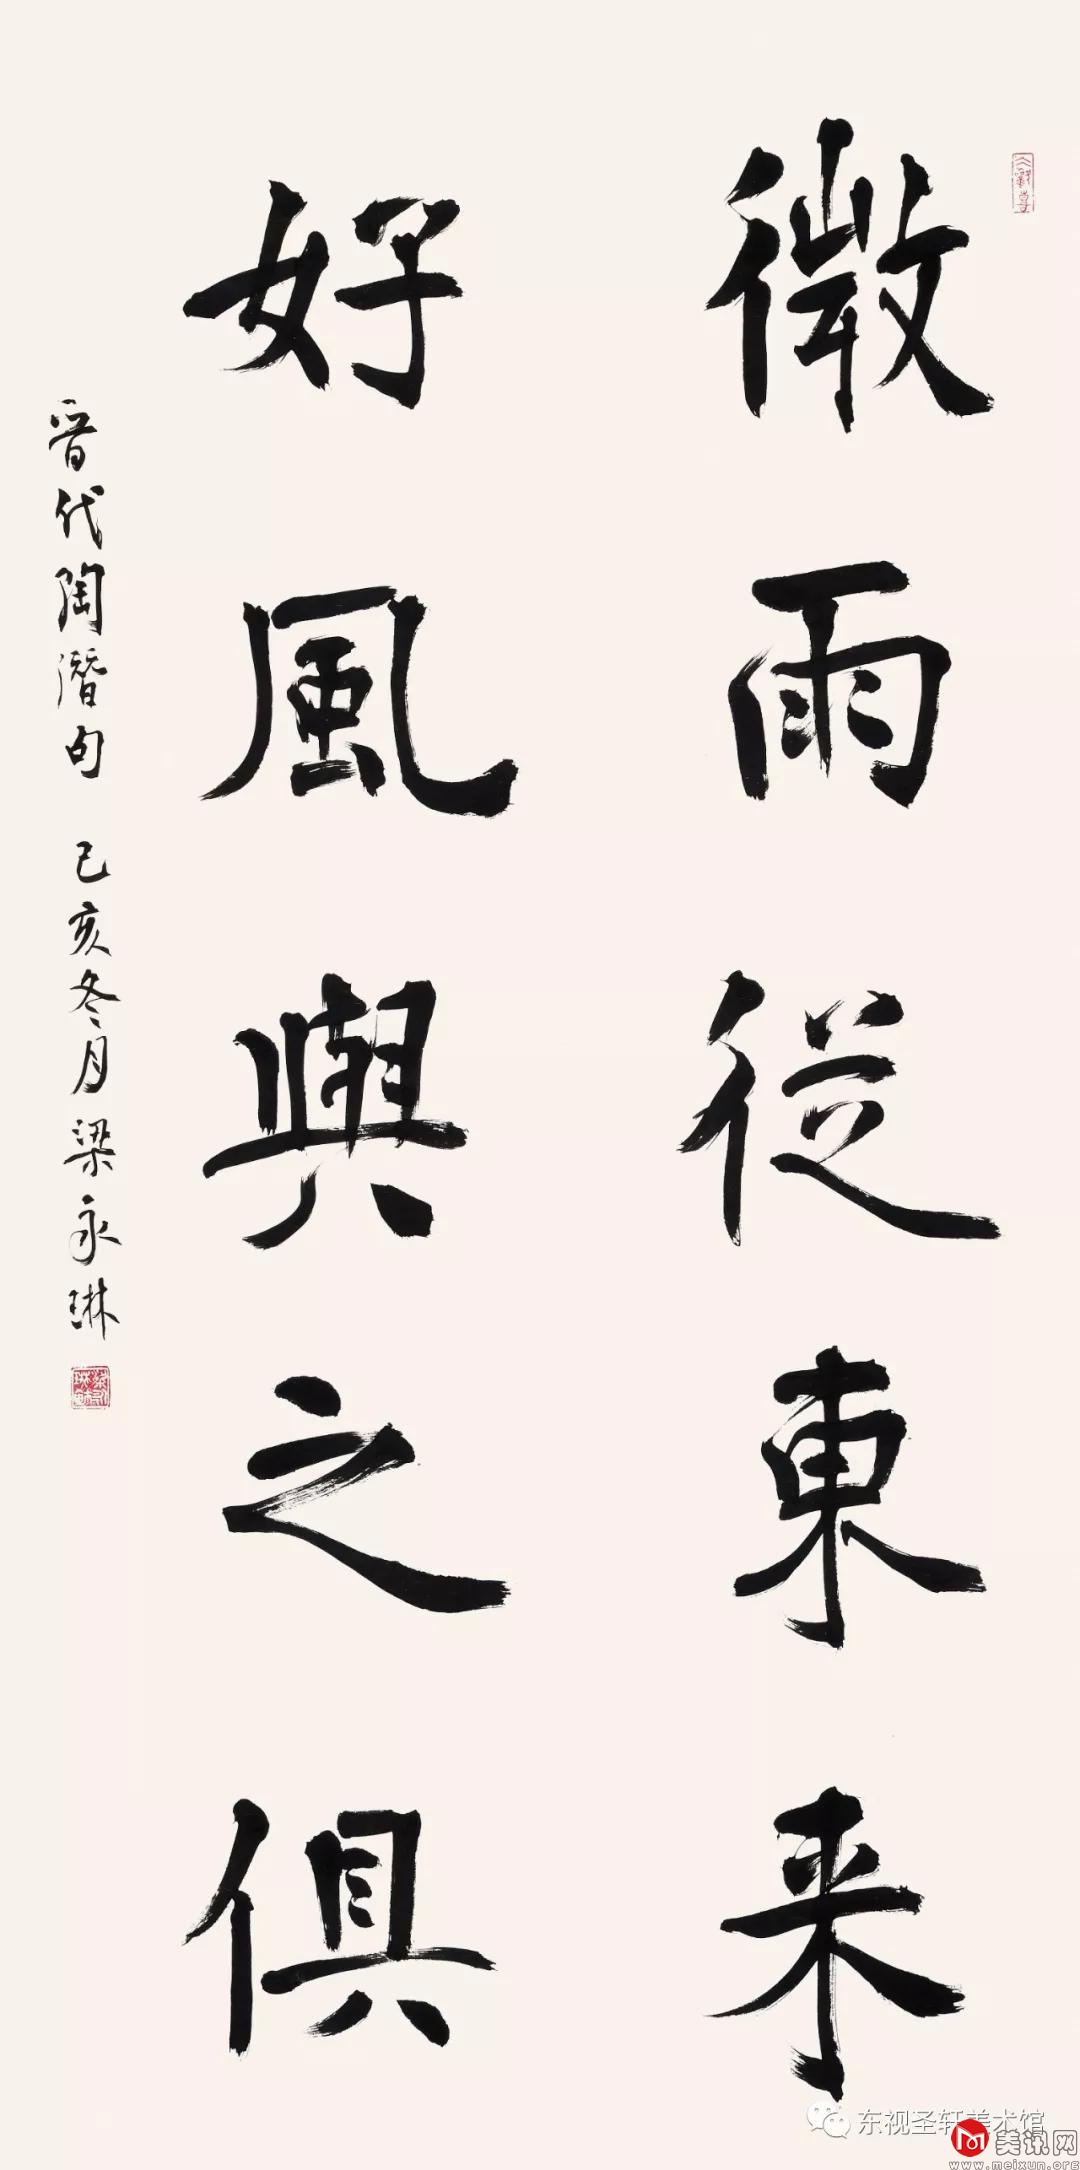 微雨從東来
好風與之俱
晋代陶潛句 己亥冬月梁永琳
东视圣轩美术馆
美讯网
www.meixun.org